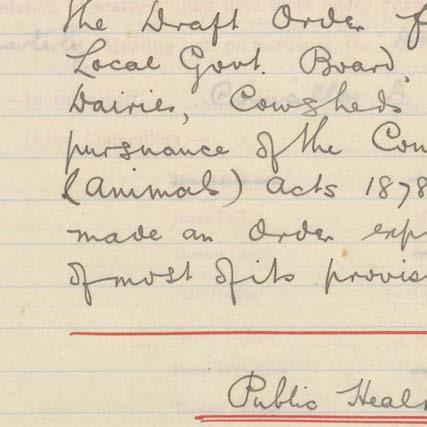 the Draft Order f
Local Govt. Board,
Dairies, Cowsheds
pursuance of the Con
(Animals) Acts 1878
made an Order exp
of most of its provis
Public Heal